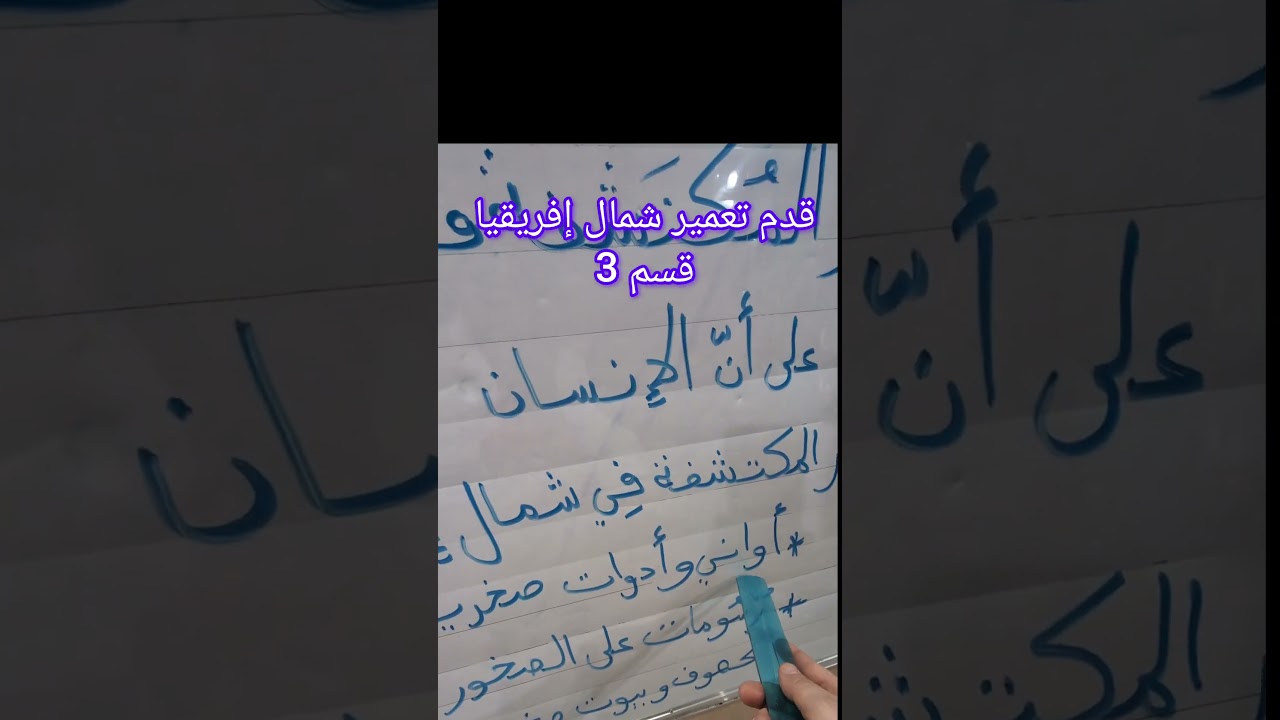 قدم تعمير شمال إفريقيا
قسم 3
على أنّ الإِنسان
المكتشفة فِي شمال
* أواني وأدوات صخرية
* رسومات على الصخور
كهوف وبيوت